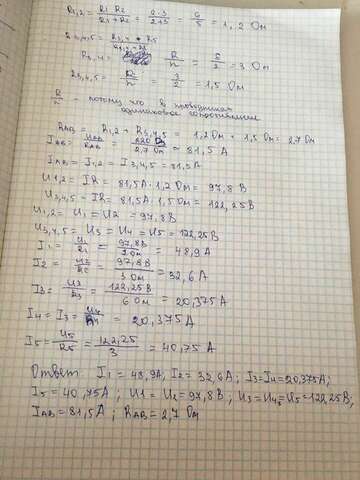 R1,2 = R1 R2 / R1 + R2 = 2·3 / 2+3 = 6/5 = 1,2 Ом
R3,4,5 = R3,4 * R5 / R3,4 + R5
R3,4 = R/n = 6/2 = 3 Ом
R3,4,5 = R/n = 3/2 = 1,5 Ом
R/n - потому что в проводниках
одинаковое сопротивление
RAB = R1,2 + R3,4,5 = 1,2 Ом + 1,5 Ом = 2,7 Ом
IAB = UAB / RAB = 220 В / 2,7 Ом ≈ 81,5 А
IAB = I1,2 = I3,4,5 = 81,5А
U1,2 = IR = 81,5А·1,2 Ом = 97,8 В
U3,4,5 = IR = 81,5А·1,5 Ом = 122,25В
U1,2 = U1 = U2 = 97,8В
U3,4,5 = U5 = U4 = U5 = 122,25В
I1 = U1 / R1 = 97,8В / 2 Ом = 48,9А
I2 = U2 / R2 = 97,8В / 3 Ом = 32,6А
I3 = U3 / R3 = 122,25В / 6 Ом = 20,375А
I4 = I3 = U4 / R4 = 20,375А
I5 = U5 / R5 = 122,25 / 3 = 40,75 А
Ответ: I1 = 48,9А; I2 = 32,6А; I3=I4=20,375А;
I5 = 40,75А; U1 = U2 = 97,8В; U3=U4=U5=122,25В;
IAB=81,5А; RAB=2,7 Ом